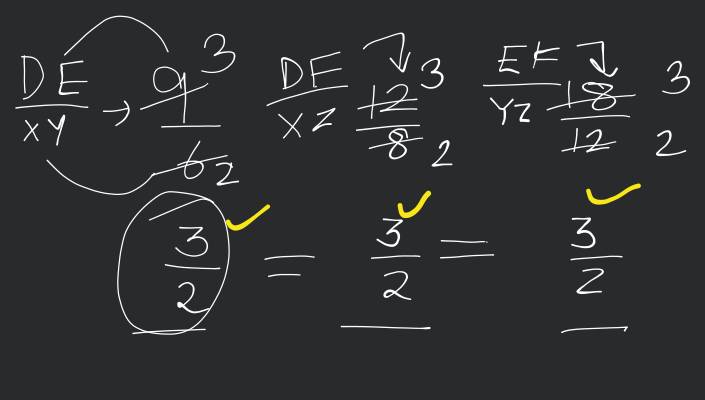 DE/XY → 9/6 3/2 DF/XZ 12/8 3/2 EF/YZ 18/12 3/2
3/2 = 3/2 = 3/2